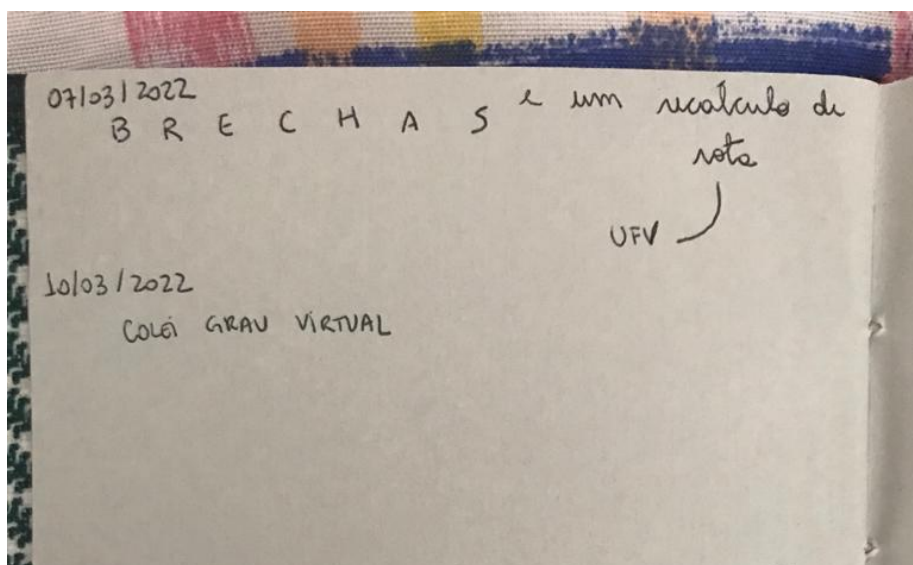 07/03/2022
B R E C H A S e um recalculo de
rota
UFV
10/03/2022
COLEI GRAU VIRTUAL